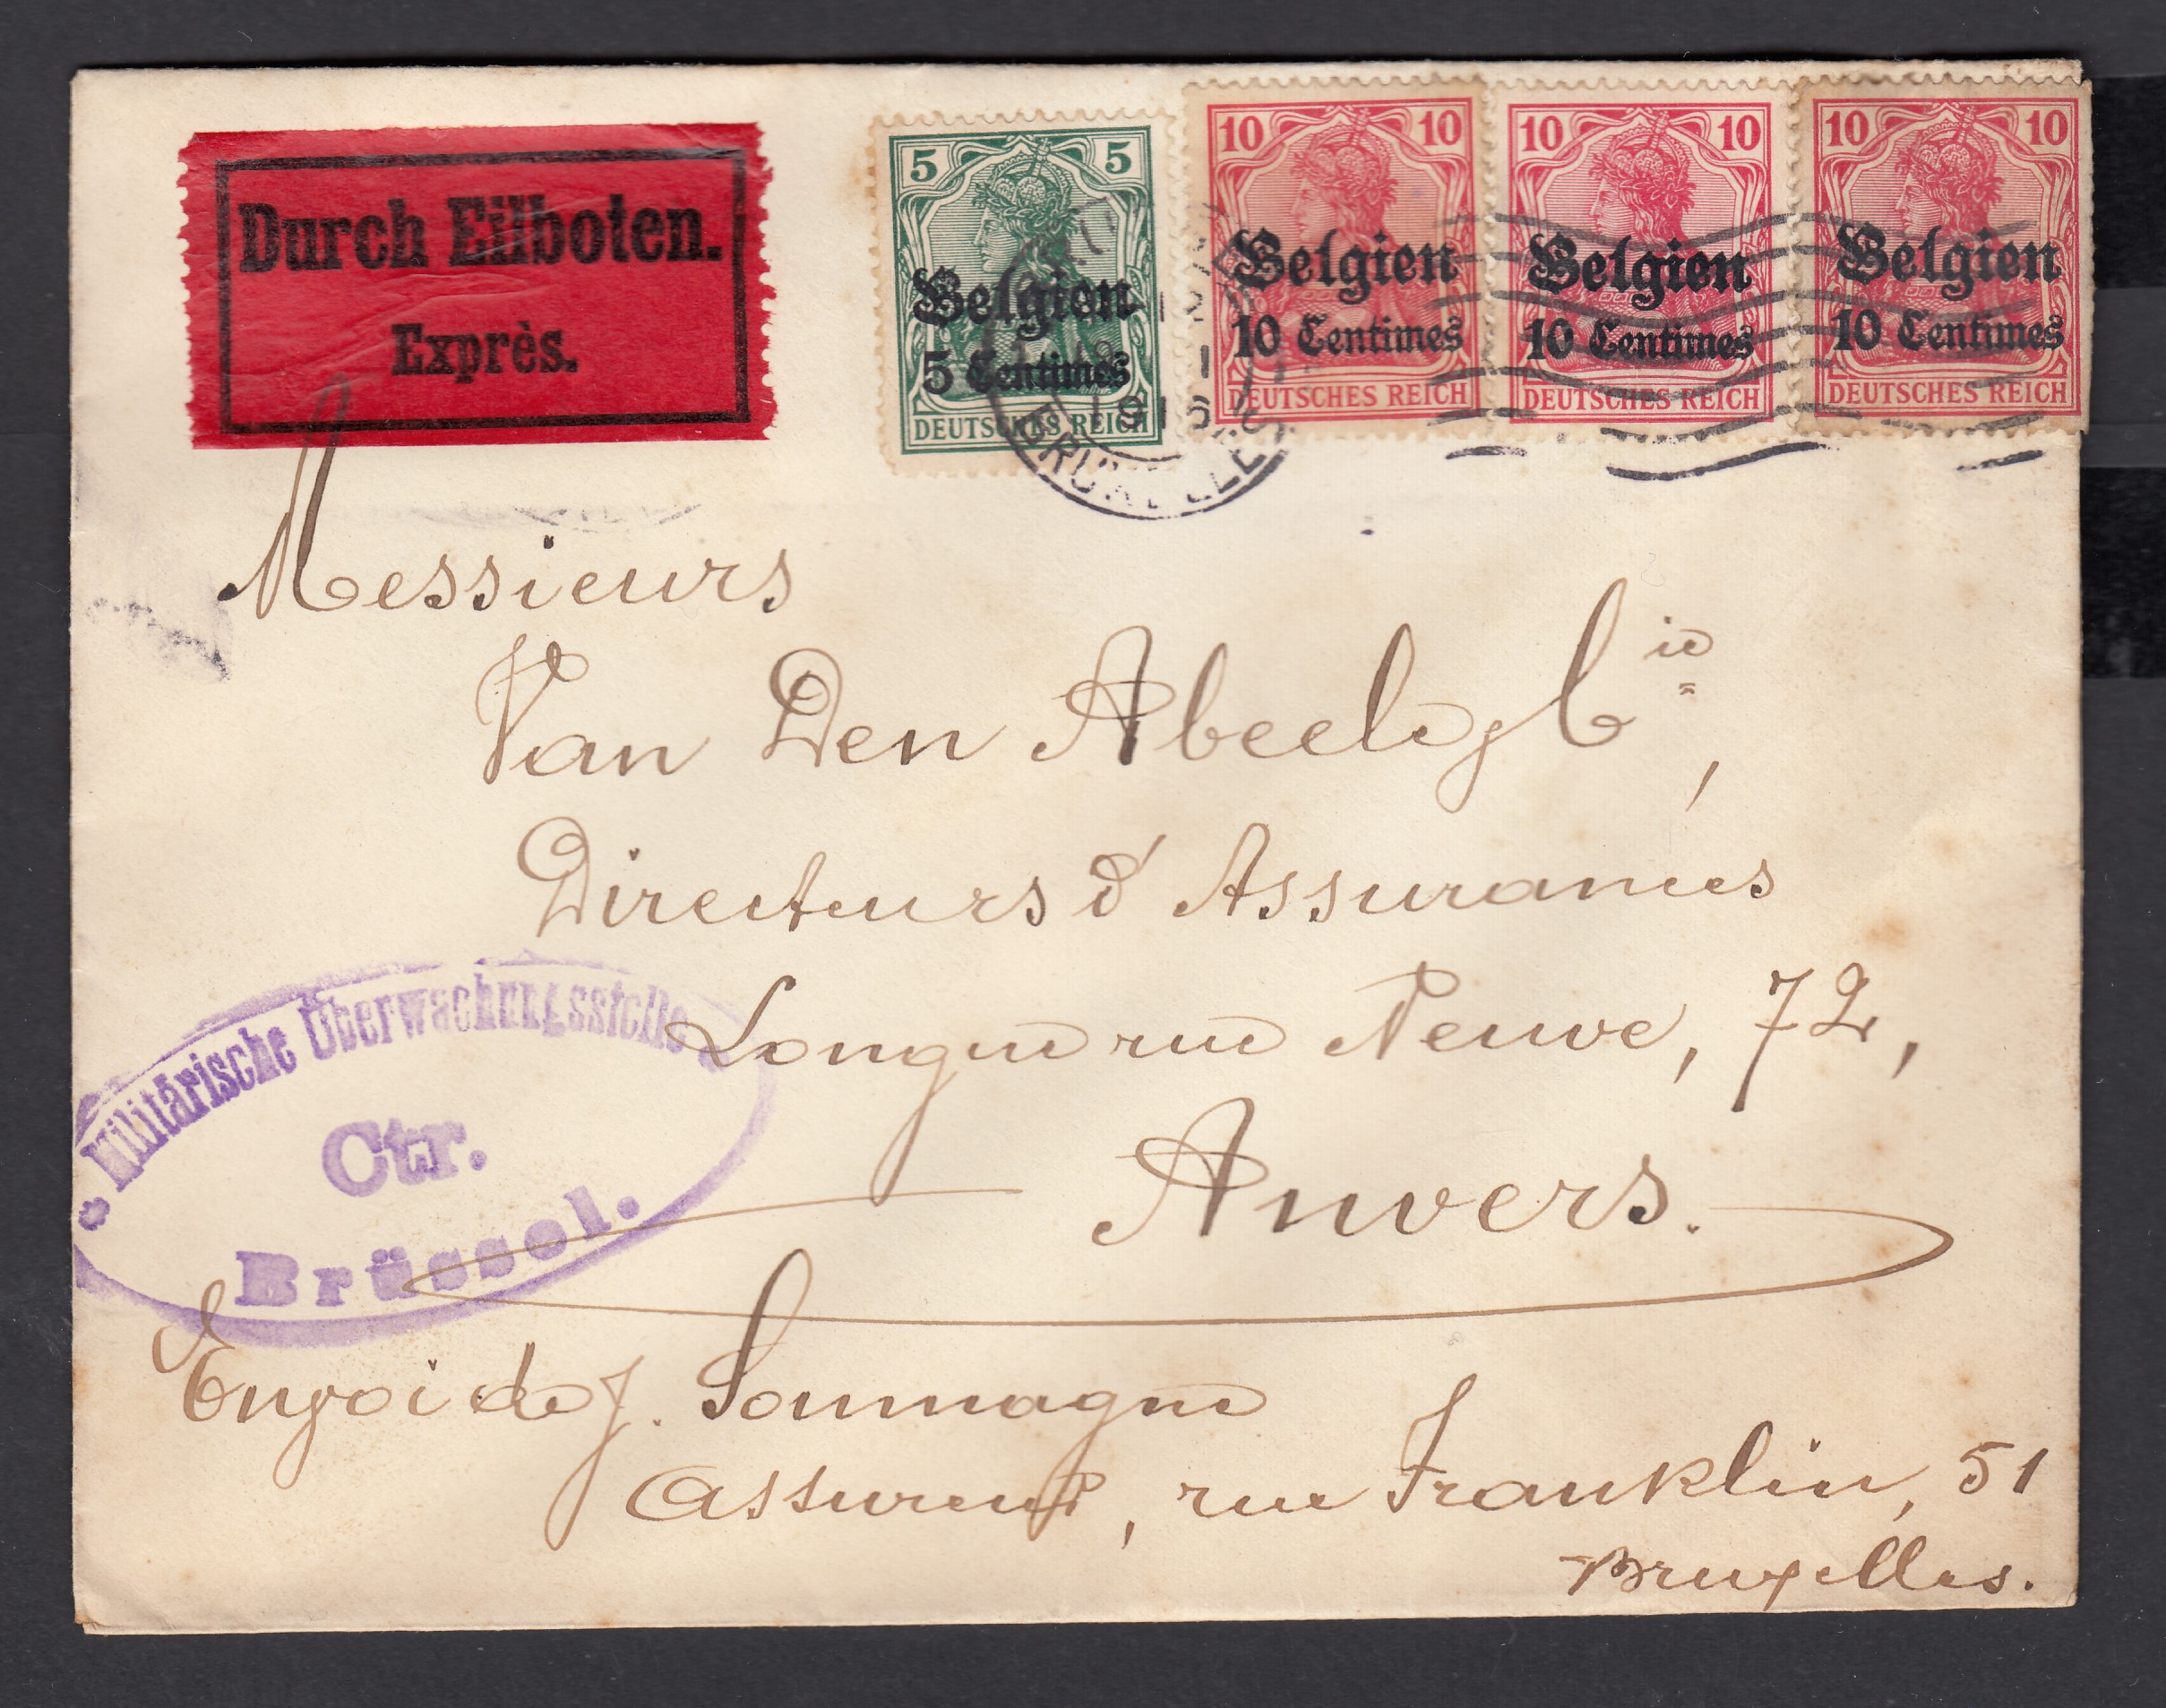 Durch Eilboten.
Exprès.
5 5
Belgien
5 Centimes
DEUTSCHES REICH
10 10
Belgien
10 Centimes
DEUTSCHES REICH
10 10
Belgien
10 Centimes
DEUTSCHES REICH
10 10
Belgien
10 Centimes
DEUTSCHES REICH
BRUXELLES
Messieurs
Van Den Abeele & Cie,
Directeurs d'Assurances
Longue rue Neuve, 72,
Anvers.
Militärische Überwachungsstelle
Ctr.
Brüssel.
Envoi de J. Soumagne
Assureur, rue Franklin, 51
Bruxelles.